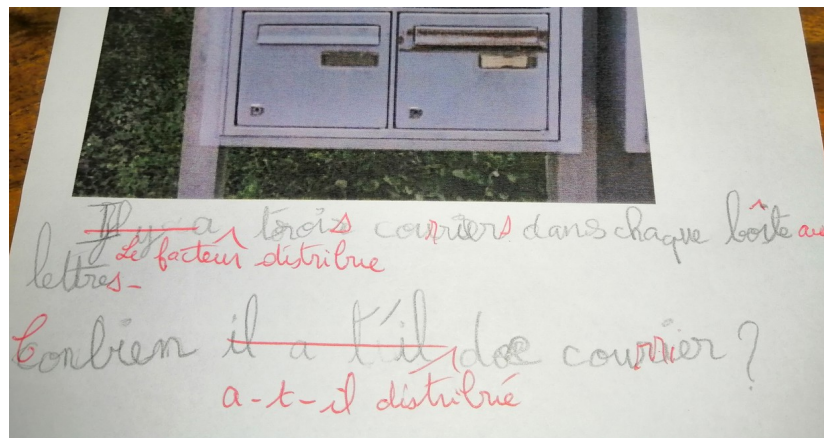 Il y a trois courriers dans chaque boîte aux
Le facteur distribue
lettres.
Conbien il a t'il de courrier ?
a-t-il distribué